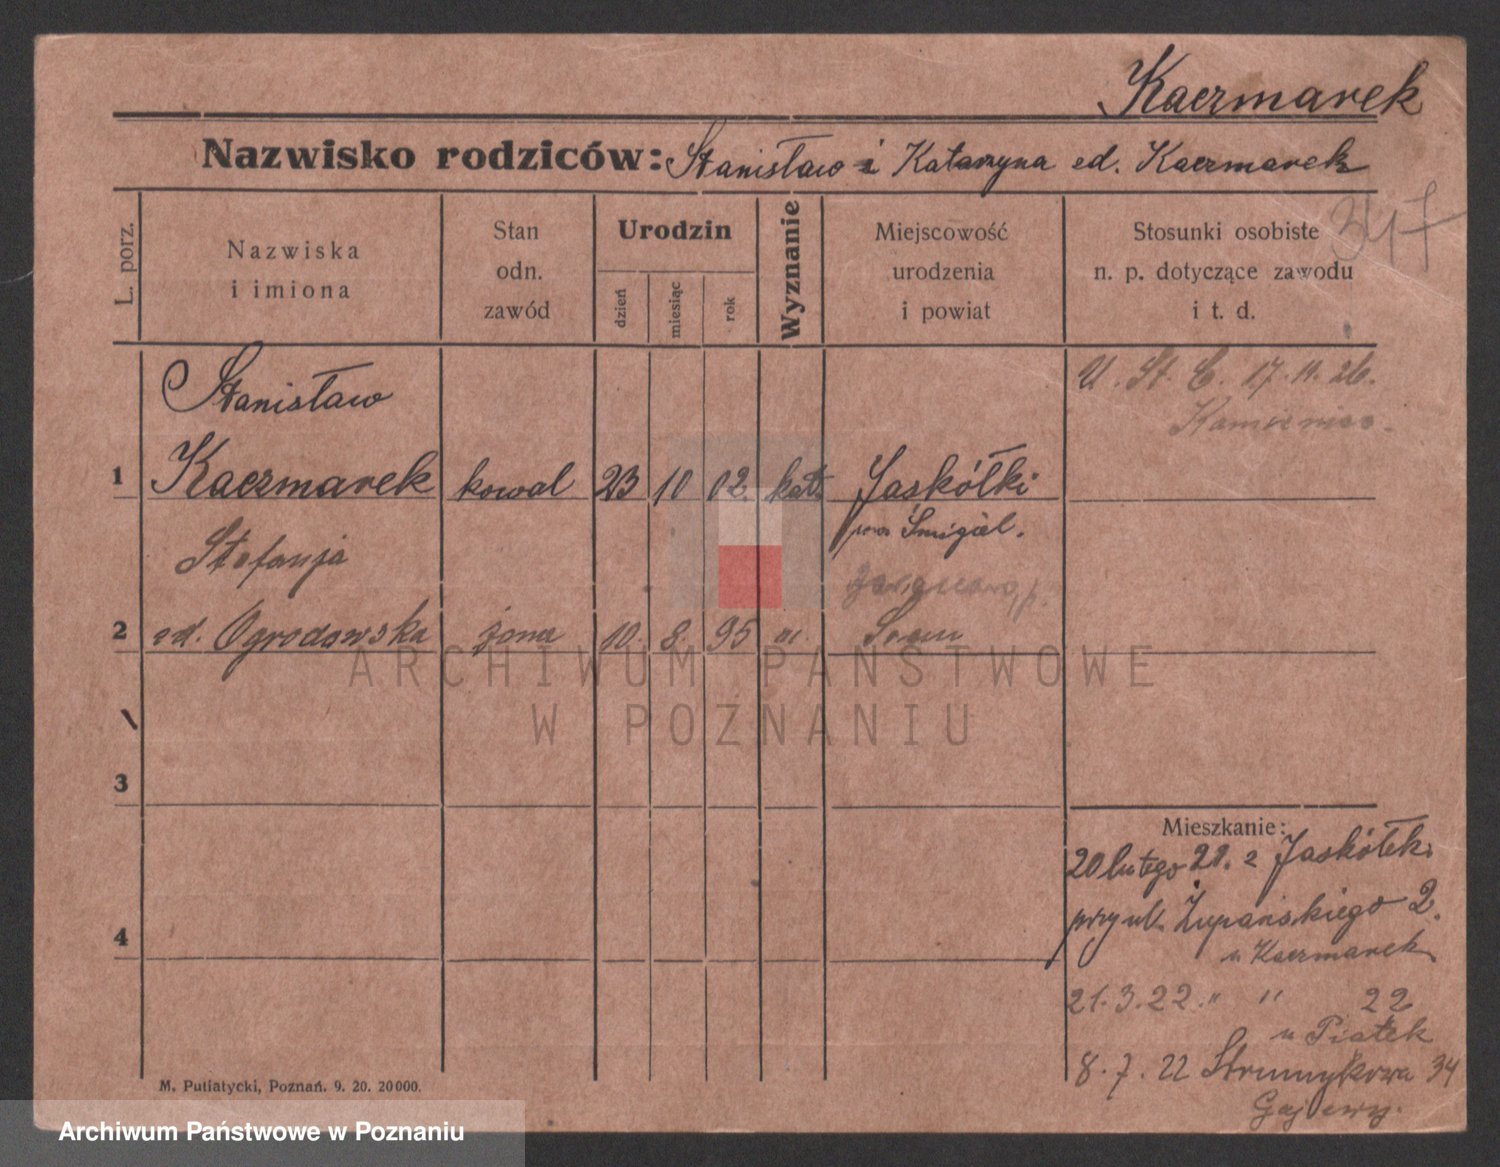 Kaczmarek
Nazwisko rodziców: Stanisław i Katarzyna zd. Kaczmarek
347
L. porz.
Nazwiska
i imiona
Stan
odn.
zawód
Urodzin
dzień
miesiąc
rok
Wyznanie
Miejscowość
urodzenia
i powiat
Stosunki osobiste
n. p. dotyczące zawodu
i t. d.
U. St. C. 17. 11. 26.
Stanisław
1 Kaczmarek kowal 23 10 02 kat. Jaskółki
pow Śmigiel.
Stefanja
2 zd. Ogrodowska żona 10. 8. 95 "
Śrem
3
4
Mieszkanie:
20 lutego 21. z Jaskółek
przy ul. Żupańskiego 2.
u Kaczmarek
21. 3. 22. " " 22
u Piątek
8. 7. 22 Strumykowa 34
M. Putiatycki, Poznań. 9. 20. 20000.
ARCHIWUM PAŃSTWOWE
W POZNANIU
Archiwum Państwowe w Poznaniu